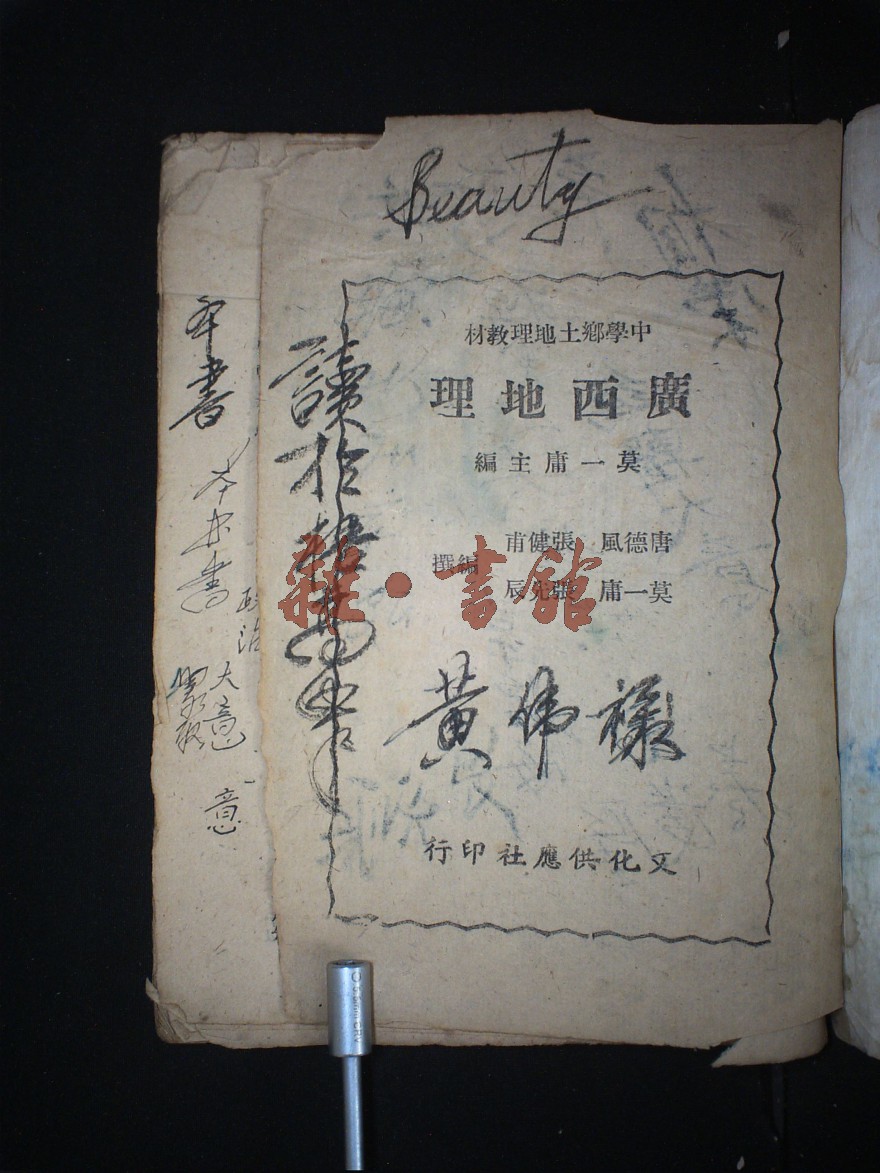 Beauty
中學鄉土地理教材
廣西地理
莫一庸主編
唐德風 張健甫
莫一庸 張先辰
編撰
黄偉樣
文化供應社印行
讀於
本書
政治
大意
意
雜·書館